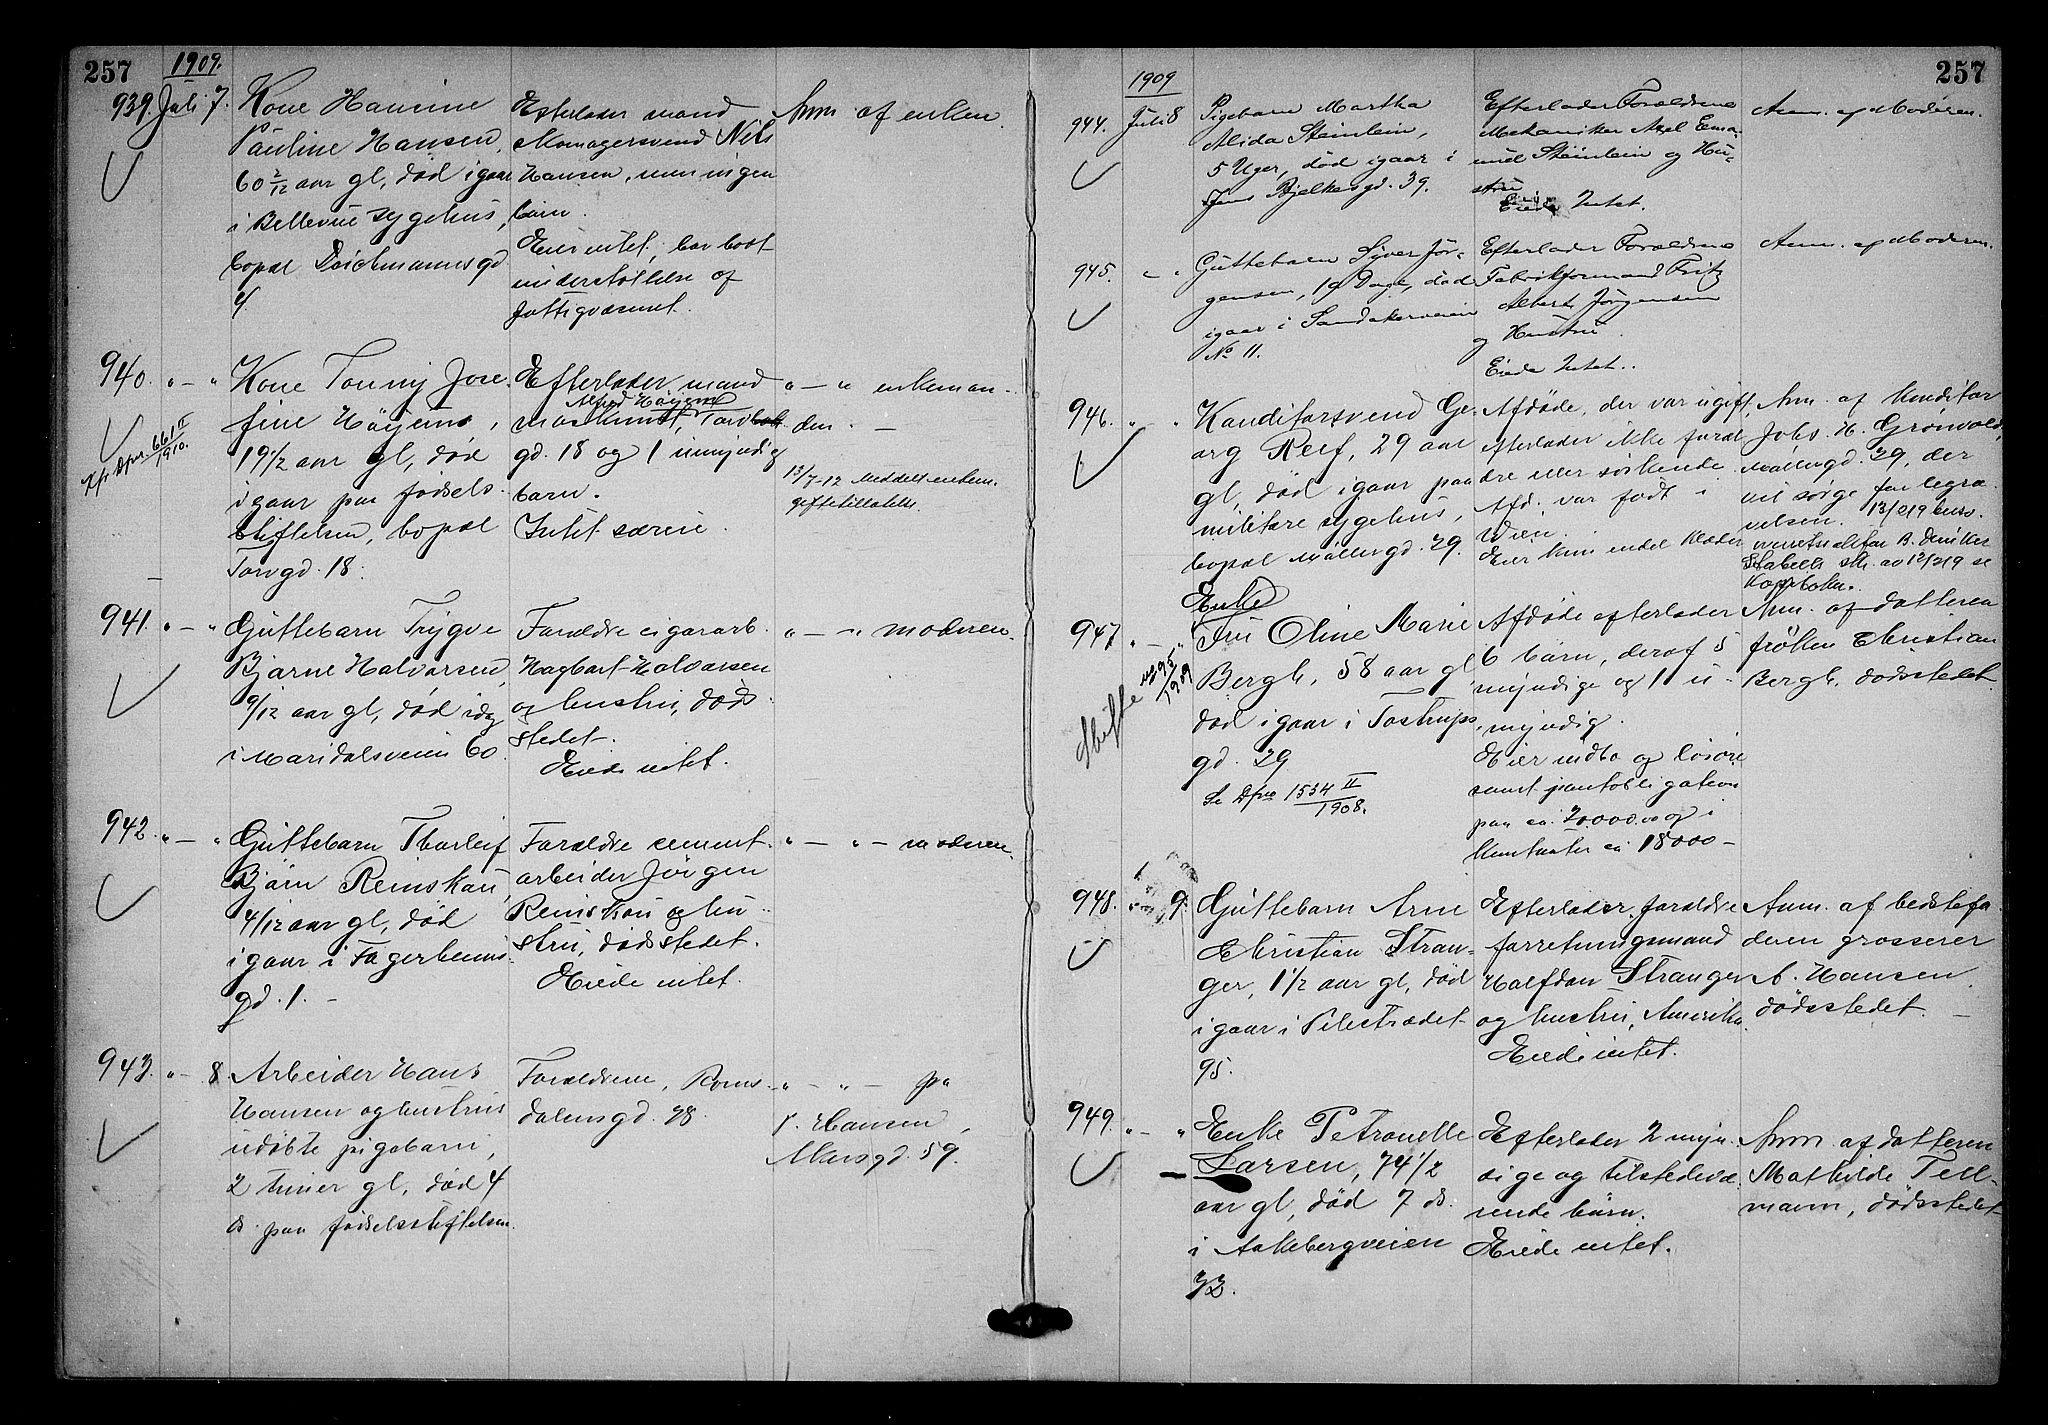 257
1909.
939. Juli 7. Kone Hansine
Pauline Hansen,
60 2/12 aar gl, død igaar
i Bellevue sygehus,
bopæl Deichmannsgd
4.
Efterlader mand
skomagersvend Nils
Hansen, men ingen
børn.
Eier intet, har havt
understøttelse af
fattigvæsenet.
Anm af enken.
940. " — " Kone Tonny Jose
fine Höyem,
19 1/2 aar gl, død
igaar paa fødsels
stiftelsen, bopæl
Torvgd. 18.
661 II
1910.
Efterlader mand
Alfred Höyem
Torvbak
gd. 18 og 1 umyndig
barn.
Intet særeie.
" — " enkeman
den. —
13/7-12 Meddelt enkem.
giftetilladelse.
941. " — " Guttebarn Trygve
Bjarne Halvorsen,
9/12 aar gl, død idag
i Maridalsveien 60
Forældre cigararb.
Hagbart Halvorsen
og hustru, døds
stedet.
Eiede intet.
" — " moderen.
942. " — " Guttebarn Thorleif
Bjørn Reinskou,
4/12 aar gl, død
igaar i Fagerheims
gd. 1. —
Forældre cement
arbeider Jörgen
Reinskou og hu
stru, dødsstedet.
Eiede intet.
" — " — moderen.
943. " — 8. Arbeider Hans
Hansen og hustrus
udøbte pigebarn,
2 timer gl, død 4
ds. paa fødselsstiftelsen.
Forældrene, Roms
dalensgd. 28.
" — " — fra
F. Hansen,
Akersgd. 59.
257
1909
944. Juli 8 Pigebarn Martha
Alida Steinlein,
5 Uger, død igaar i
Jens Bjelkesgd. 39.
Efterlader Forældrene
Mekaniker Axel Ema
nuel Steinlein og Hu-
stru
Eiede Intet.
Anm. af Moderen.
945. — " Guttebarn Syver Jör-
gensen, 19 Dage, død
igaar i Sandakerveien
No 11.
Efterlader Forældrene
Fabrikformand Fritz
Albert Jörgensen
og Hustru.
Eiede Intet.
Anm. af Moderen.
946. " " Konditorsvend Ge-
org Reif, 29 aar
gl, død igaar paa
militære sygehus,
bopæl Møllergd. 29.
Afdøde, der var ugift,
efterlader ikke foræl
dre eller søskende.
Afd. var født i
Wien.
Eier kun endel klæder
Anm. af konditor
Johs. H. Grönvold,
Møllergd. 29, der
vil sørge for begra
velsen. 13/219
B. Deniker
Stabells skr. av 12/219 se
Kopiboken.
Enke
947. " — " Fru Oline Marie
Bergh, 58 aar gl,
død igaar i Tostrups
gd. 29
Se Dfno 1534 II
1908.
Skifte
95
1909
Afdøde efterlader
6 børn, deraf 5
myndige og 1 u-
myndig.
Eier indbo og løsøre
samt pantobligation
paa ca. 20.000.00 og i
kontanter ca 18000 —
Anm. af datteren
frøken Christian
Bergh, dødsstedet.
948. 9. Guttebarn Arne
Christian Stran-
ger, 1 1/2 aar gl, død
igaar i Pilestrædet
95.
Efterlader forældre
forretningsmand
Halfdan Stranger
og hustru, Amerika.
Eiede intet.
Anm. af bedstefa-
deren grosserer
A. Hansen,
dødsstedet. —
949. " — " Enke Petronelle
Larsen, 74 1/2
aar gl, død 7 ds.
i Aakebergveien
32.
Efterlader 2 myn
dige og tilstedevæ
rende børn.
Eiede intet.
Anm af datteren
Mathilde Tell-
mann, dødsstedet